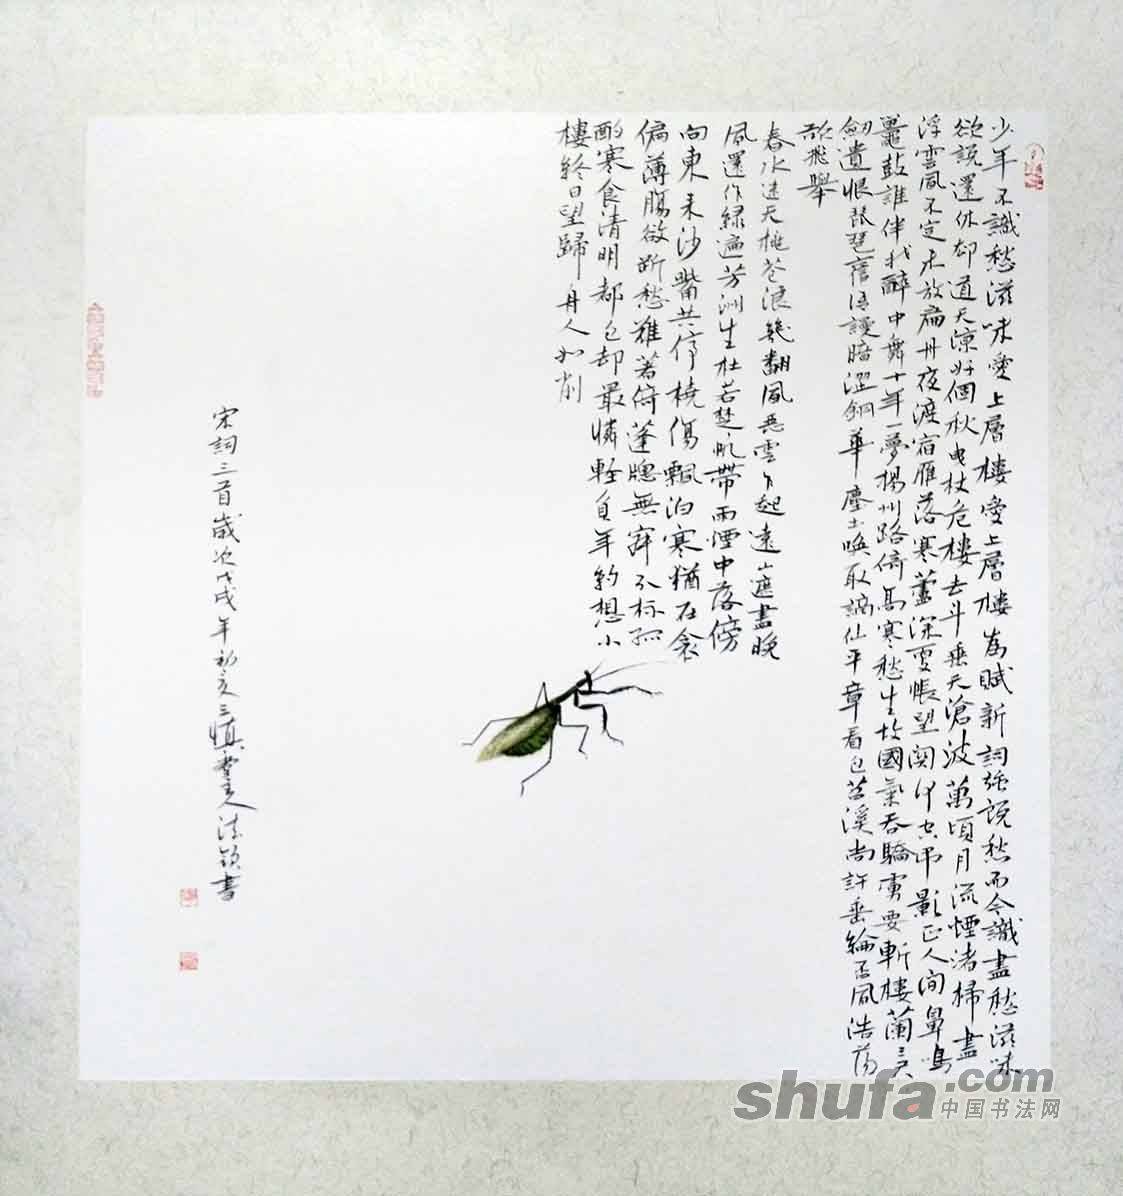 少年不識愁滋味愛上層樓愛上層樓為賦新詞強說愁而今識盡愁滋味
欲說還休却道天涼好個秋曳杖危樓去斗垂天滄波萬頃月流煙渚掃盡
浮雲風不定未放扁舟夜渡宿雁落寒蘆深處悵望關河空弔影正人間鼻鳴
鼉鼓誰伴我醉中舞十年一夢揚州路倚高寒愁生故國氣吞驕虜要斬樓蘭三尺
劍遺恨琵琶舊語謾暗澀銅華塵土喚取謫仙平章看過苕溪尚許垂綸否風浩蕩
欲飛舉
春水迷天桃花浪幾翻風惡雲乍起遠山遮盡晚
風還作綠遍芳洲生杜若楚帆帶雨煙中落傍
向東來沙嘴共停橈傷飄泊寒猶在衾
偏薄腸欲斷愁難著倚蓬窗無寐引杯孤
酌寒食清明都過却最憐輕負年約想小
樓終日望歸舟人如削
宋詞三首歲次戊戌年初夏三慎堂主人法領書
shufa.com
中国书法网